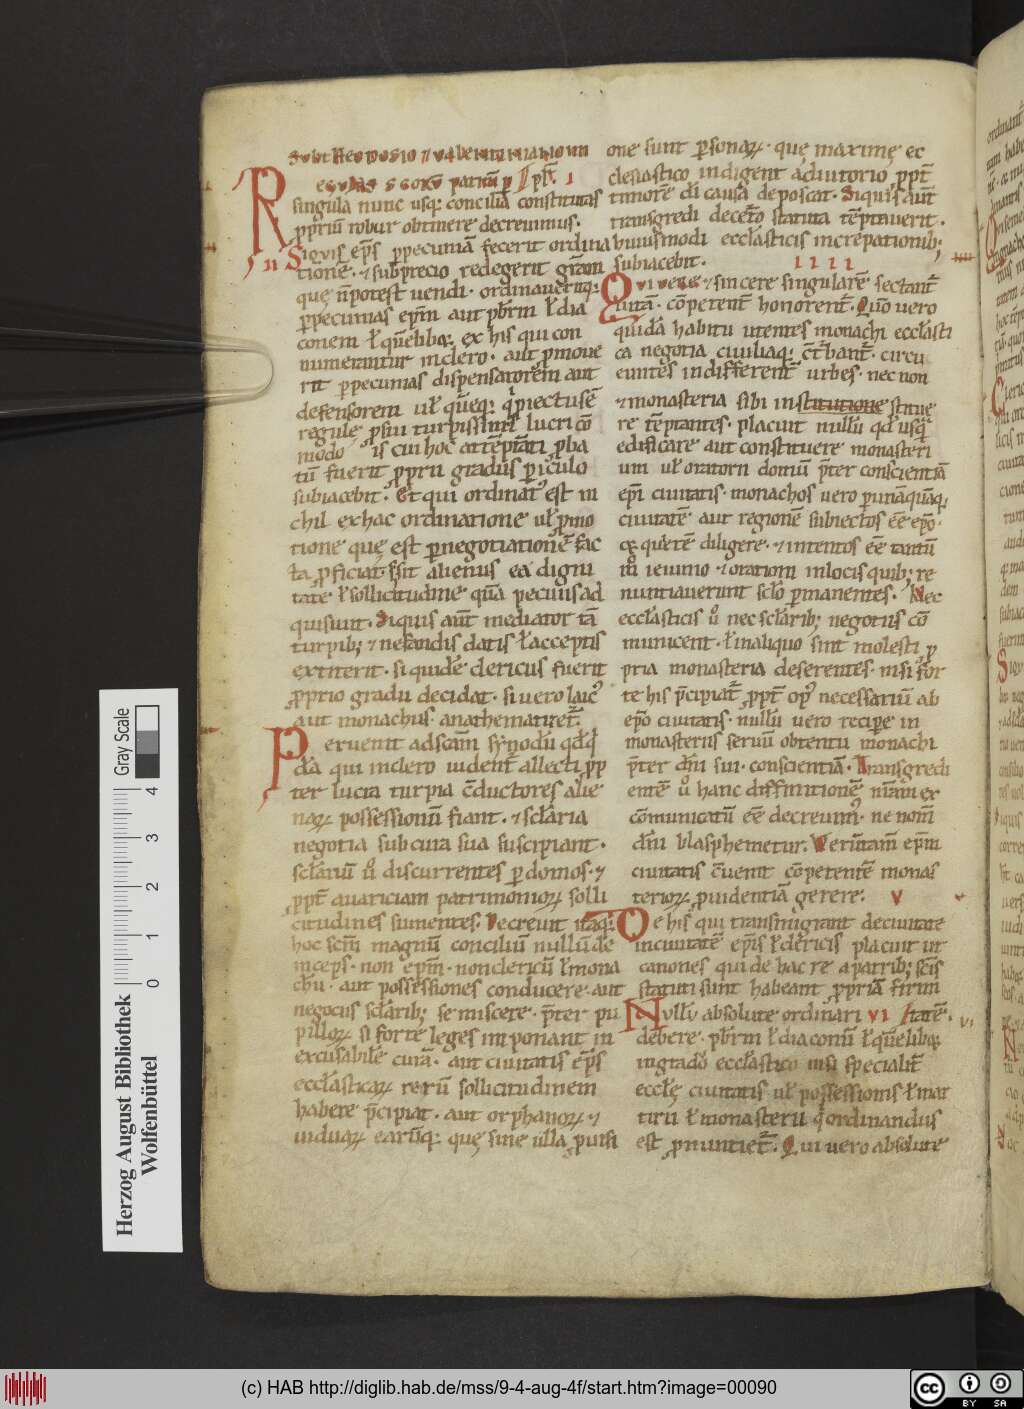 Subt Heodosio ⁊ valentiniano un
Regulas s̄corū patrū p
singula nunc usq; concilia constitutas
p̱priū robur obtinere decreuimus.
Siquis ep̄s p̱pecuniā fecerit ordina
tionē. ⁊ sub precio redegerit grām
que n̄ potest uendi. ordinaueritq;
p̱pecunias ep̄m aut pb̄rm ł dia
conem ł quēlibꝫ ex his qui con
numerantur in clero. aut p̱moue
rit p̱pecunias dispensatorem aut
defensorem uł quēq;
regulę p̱ suū turpissimi lucri cō
modo is cui hoc attēptāti p̱ba
tū fuerit p̱prii gradus piculo
subiacebit. Et qui ordinat᷒ est ni
chil ex hac ordinatione uł p̱mo
tione que est p̱ negotiationē fac
ta p̱ficiat. s̄ sit alienus ea digni
tate ł sollicitudine quā pecuniis ad
quisiuit. Siquis aūt mediator tā
turpib; ⁊ nefandis datis ł acceptis
extiterit. si quidē clericus fuerit
p̱prio gradu decidat. si uero laic᷒
aut monachus. anathematizet᷑.
Peruenit ad scām synodū qđ q̄
dā qui in clero uident᷑ allecti p̱p
ter lucra turpia c̄ductores alie
naꝝ possessionū fiant. ⁊ sclāria
negotia sub cura sua suscipiant.
sclāriū ů discurrentes p̱ domos. ⁊
p̱pt᷑ auariciam patrimonioꝝ solli
citudines sumentes. Decreuit itaq;
hoc scm̄ magnū conciliū nullū de
inceps. non ep̄m. non clericū ł mona
chū. aut possessiones conducere. aut
negociis sclārib; se miscere. p̄ter pu
pilloꝝ si forte leges imponant in
excusabilē curā. aut ciuitatis ep̄s
ecclāsticaꝝ rerū sollicitudinem
habere p̄cipiat. aut orphanoꝝ ⁊
uiduaꝝ earūq; que sine ulla p̱uisi
one sunt p̱sonaꝝ. que maxime ec
clesiastico indigent adiutorio p̱pt᷑
timorē dī causa deposcat. Siquis aūt
transgredi decr̄to statuta tēptauerit.
huiusmodi ecclāsticis increpationib;
subiacebit. IIII
Qui uere ⁊ sincere singularē sectant᷑
uitā. cōpetent᷑ honorent᷑. Quō uero
quidā habitu utentes monachi ecclāsti
ca negotia ciuiliaq; c̄t᷑bant᷑. circu
euntes indifferent᷑ urbes. nec non
⁊ monasteria sibi institutione stitue
re tēptantes. placuit nullū qđ usq̄
edificare aut constituere monasteri
um uł oratorii domū p̄ter conscientiā
ep̄i ciuitatis. monachos uero p̱ unāquāq;
ciuitatē aut regionē subiectos eē ep̄o.
⁊ quietē diligere. ⁊ intentos eē tantū
m̊ ieiunio ⁊ orationi in locis quib; re
nuntiauerunt sclō p̱manentes. Nec
ecclāsticis ů nec sclārib; negotiis cō
municent. ł in aliquo sint molesti p̱
pria monasteria deserentes. nisi for
te his p̄cipiat᷑ p̱pt᷑ op᷒ necessariū ab
ep̄o ciuitatis. nullū uero recipe in
monasteriis seruū obtentu monachi
p̄ter dn̄i sui conscientiā. Transgredi
entē ů hanc diffinitionē nr̄am ex
cōmunicatū eē decreuim᷒. ne nom̄
dn̄i blasphemetur. Verūtam̄ ep̄m
ciuitatis c̄uenit cōpetentē monas
terioꝝ p̱uidentiā gerere. V
De his qui transmigrant de ciuitate
in ciuitatē ep̄is ł clericis placuit ut
canones qui de hac re a patrib; scīs
statuti sunt habeant p̱priā firmi
Nullū absolute ordinari VI tatē.
debere. pb̄rm ł diaconū ł quēlibꝫ
in gradū ecclāstico nisi specialit᷑
ecclę ciuitatis uł possessionis ł mar
tirii ł monasterii q̄ ordinandus
est p̱nuntiet᷑. Qui uero absolute
Gray Scale
0 1 2 3 4
Herzog August Bibliothek
Wolfenbüttel
(c) HAB http://diglib.hab.de/mss/9-4-aug-4f/start.htm?image=00090
cc BY SA